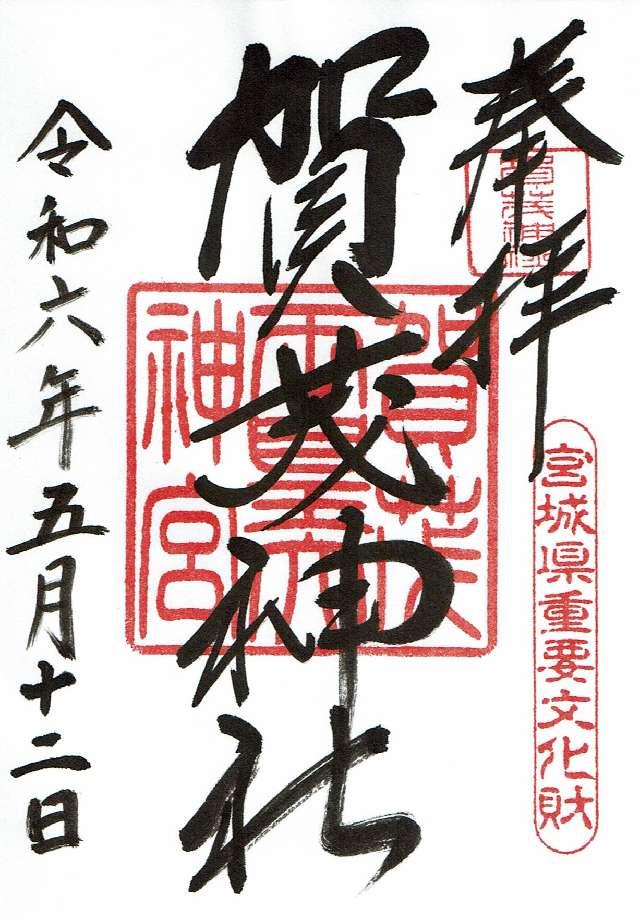 奉拝
賀茂神社
宮城県重要文化財
賀茂
神宮
令和六年五月十二日